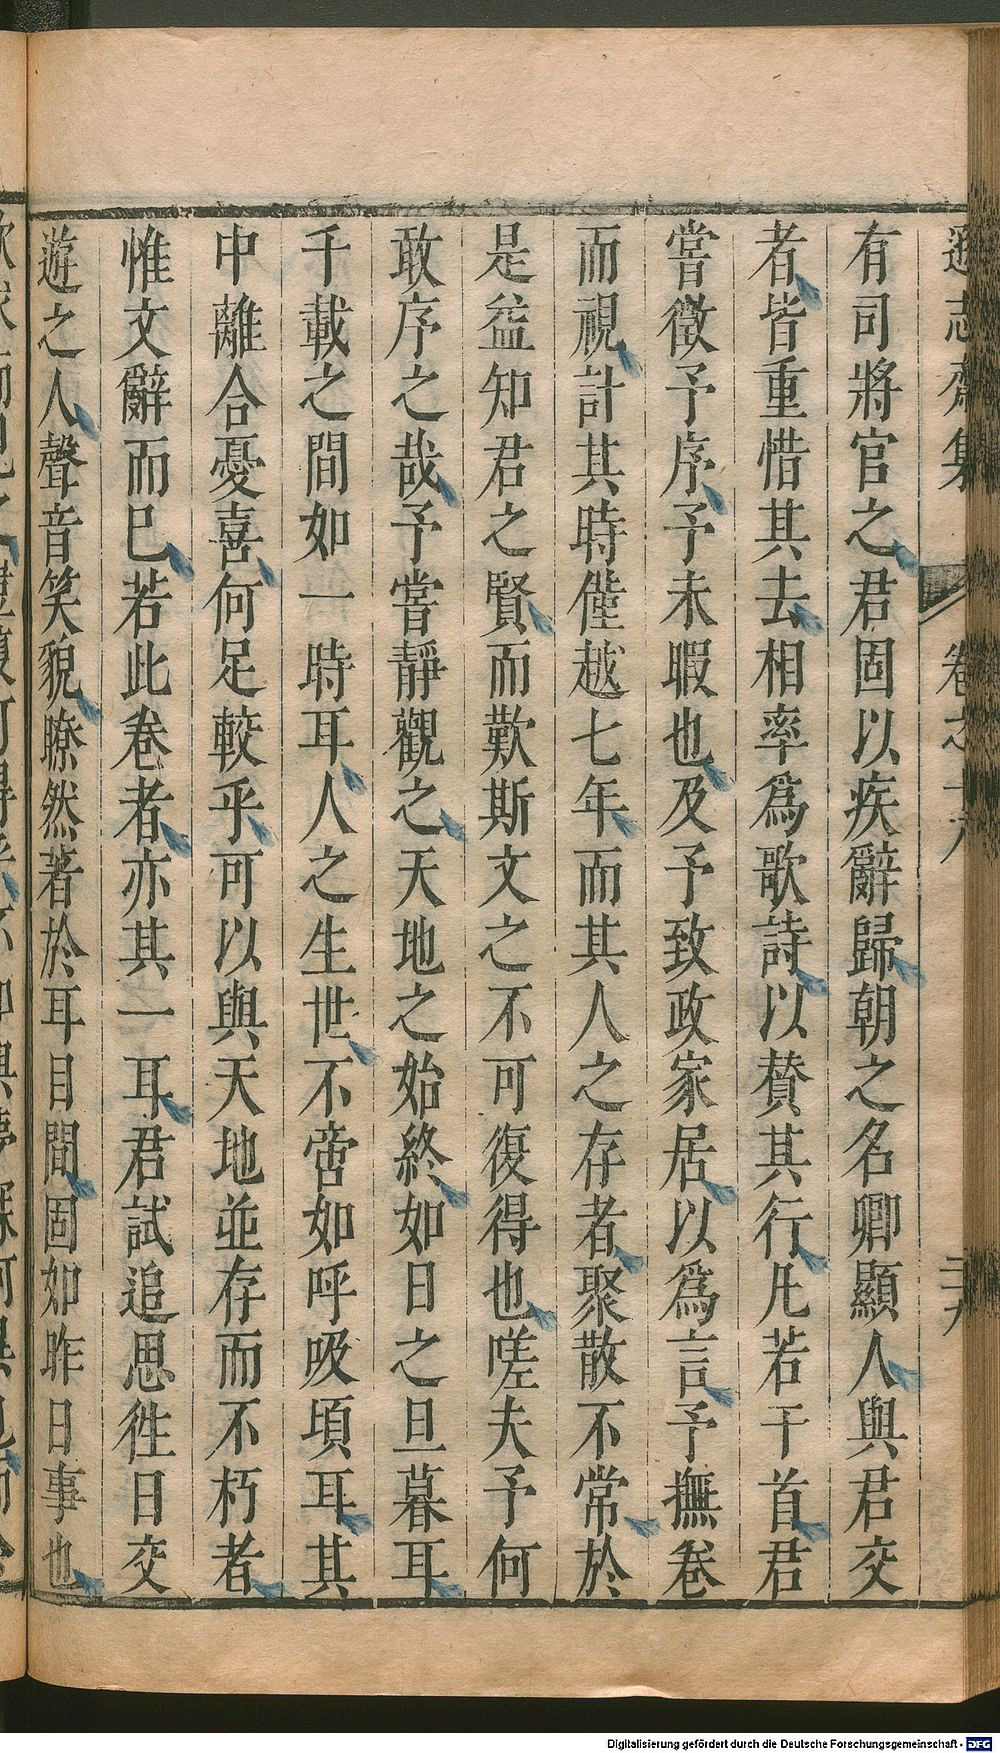 遜志齋集 卷之十八 三十九
有司將官之君固以疾辭歸朝之名卿顯人與君交
者皆重惜其去相率爲歌詩以賛其行凡若干首君
嘗徵予序予未暇也及予致政家居以爲言予撫卷
而視計其時僅越七年而其人之存者聚散不常於
是益知君之賢而歎斯文之不可復得也嗟夫予何
敢序之哉予嘗靜觀之天地之始終如日之旦暮耳
千載之間如一時耳人之生世不啻如呼吸頃耳其
中離合憂喜何足較乎可以與天地並存而不朽者
惟文辭而已若此卷者亦其一耳君試追思徃日交
遊之人聲音笑貌瞭然著於耳目間固如昨日事也
Digitalisierung gefördert durch die Deutsche Forschungsgemeinschaft - DFG